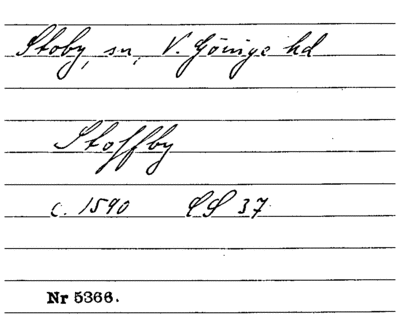 Stoby, sn, V. Göinge hd
Stoffby
c. 1590 CS 37
Nr 5366.